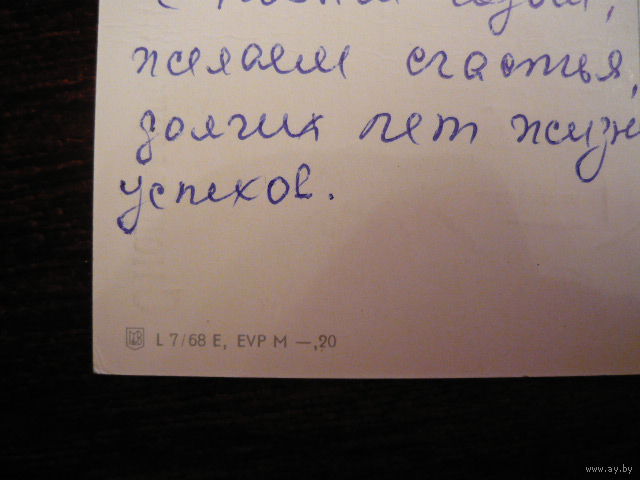 с Новым годом,
желаем счастья,
долгих лет жизн
успехов.
L 7/68 E, EVP M —,20
www.ay.by